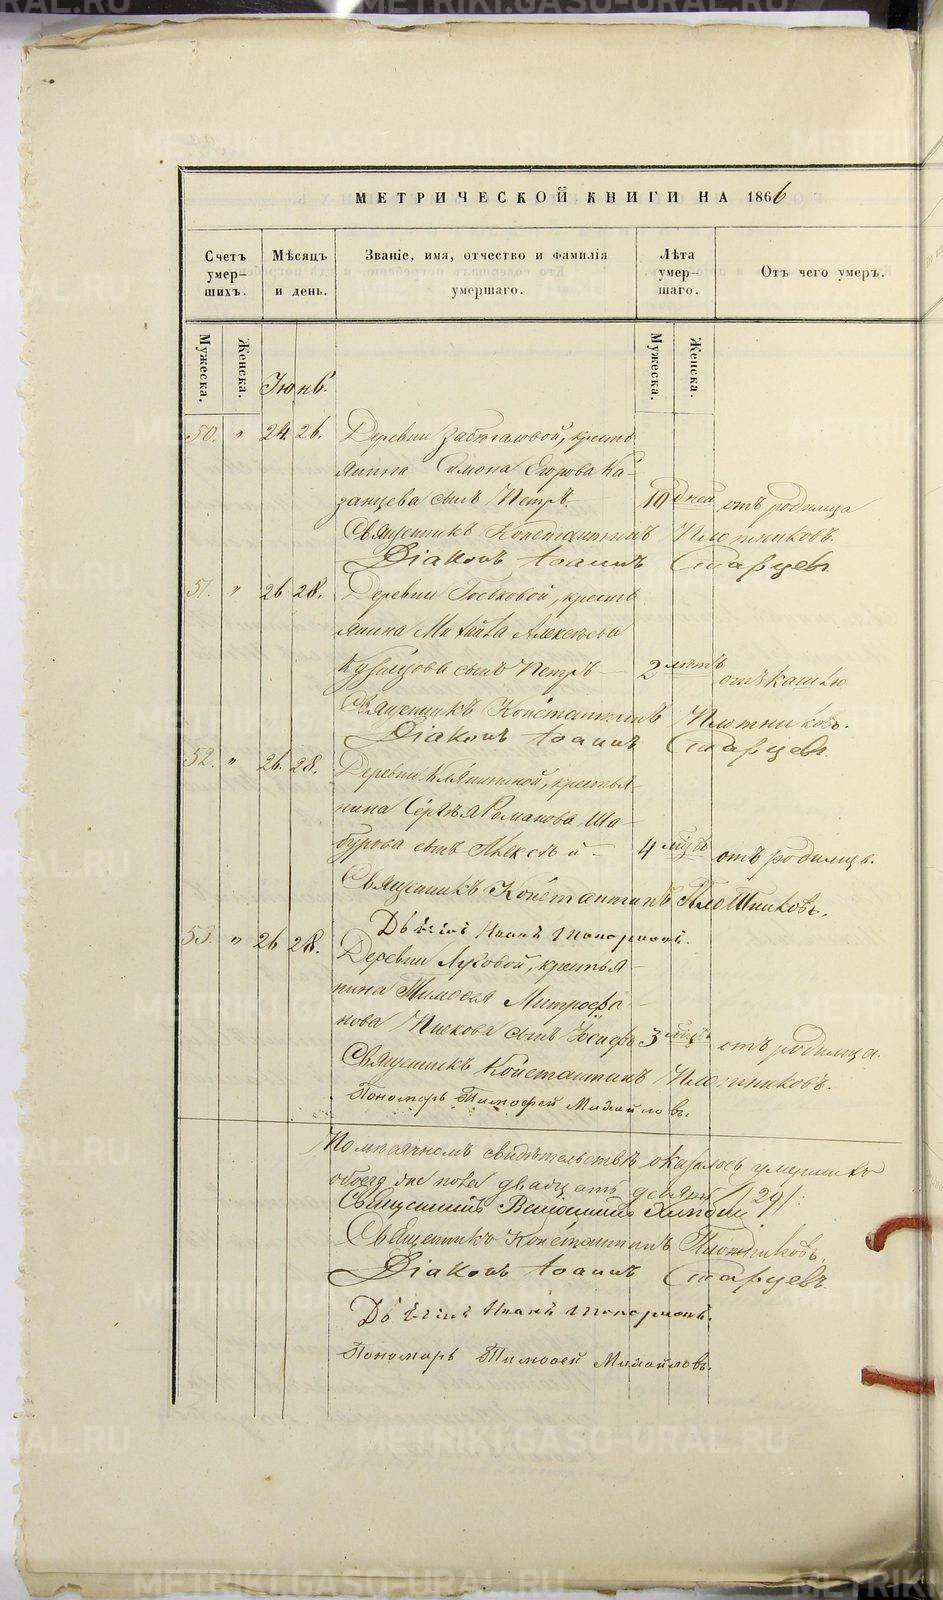 МЕТРИЧЕСКОЙ КНИГИ НА 1866
Счетъ умер-шихъ.
Мѣсяцъ и день.
Званіе, имя, отчество и фамилія умершаго.
Лѣта умер-шаго.
Отъ чего умеръ.
Мужеска.
Женска.
Мужеска.
Женска.
Іюнь.
50. " 24. 26. Деревни крестья
янина Симона Егорова Ка-
занцева сынъ Петръ 10 дней отъ родимца
Священникъ Константинъ Плотниковъ.
Діаконъ Іоаннъ Старцевъ
51. " 26 28. Деревни крестья
янина Михаила Алексѣева
Кузнецова сынъ Петръ 2 лѣтъ отъ кашлю
Священникъ Константинъ Плотниковъ.
Діаконъ Іоаннъ Старцевъ
52. " 26. 28. Деревни крестья-
нина Сергѣя Романова Ша-
бурова сынъ Алексѣй 4 мѣсцъ отъ родимца.
Священникъ Константинъ Плотниковъ.
Дьячекъ Иванъ
53. " 26 28. Деревни Луковой, крестья-
нина Тимофея Митрофа-
нова сынъ 3 мѣсцъ отъ родимца.
Священникъ Константинъ Плотниковъ.
Пономарь Тимофей Михайловъ.
По мѣсячномъ свидѣтельствѣ оказалось умершихъ
обоего пола двадцать девять /29/:
Священникъ
Священникъ Константинъ Плотниковъ.
Діаконъ Іоаннъ Старцевъ
Дьячекъ Иванъ
Пономарь Тимофей Михайловъ.
METRIKI.GASO-URAL.RU